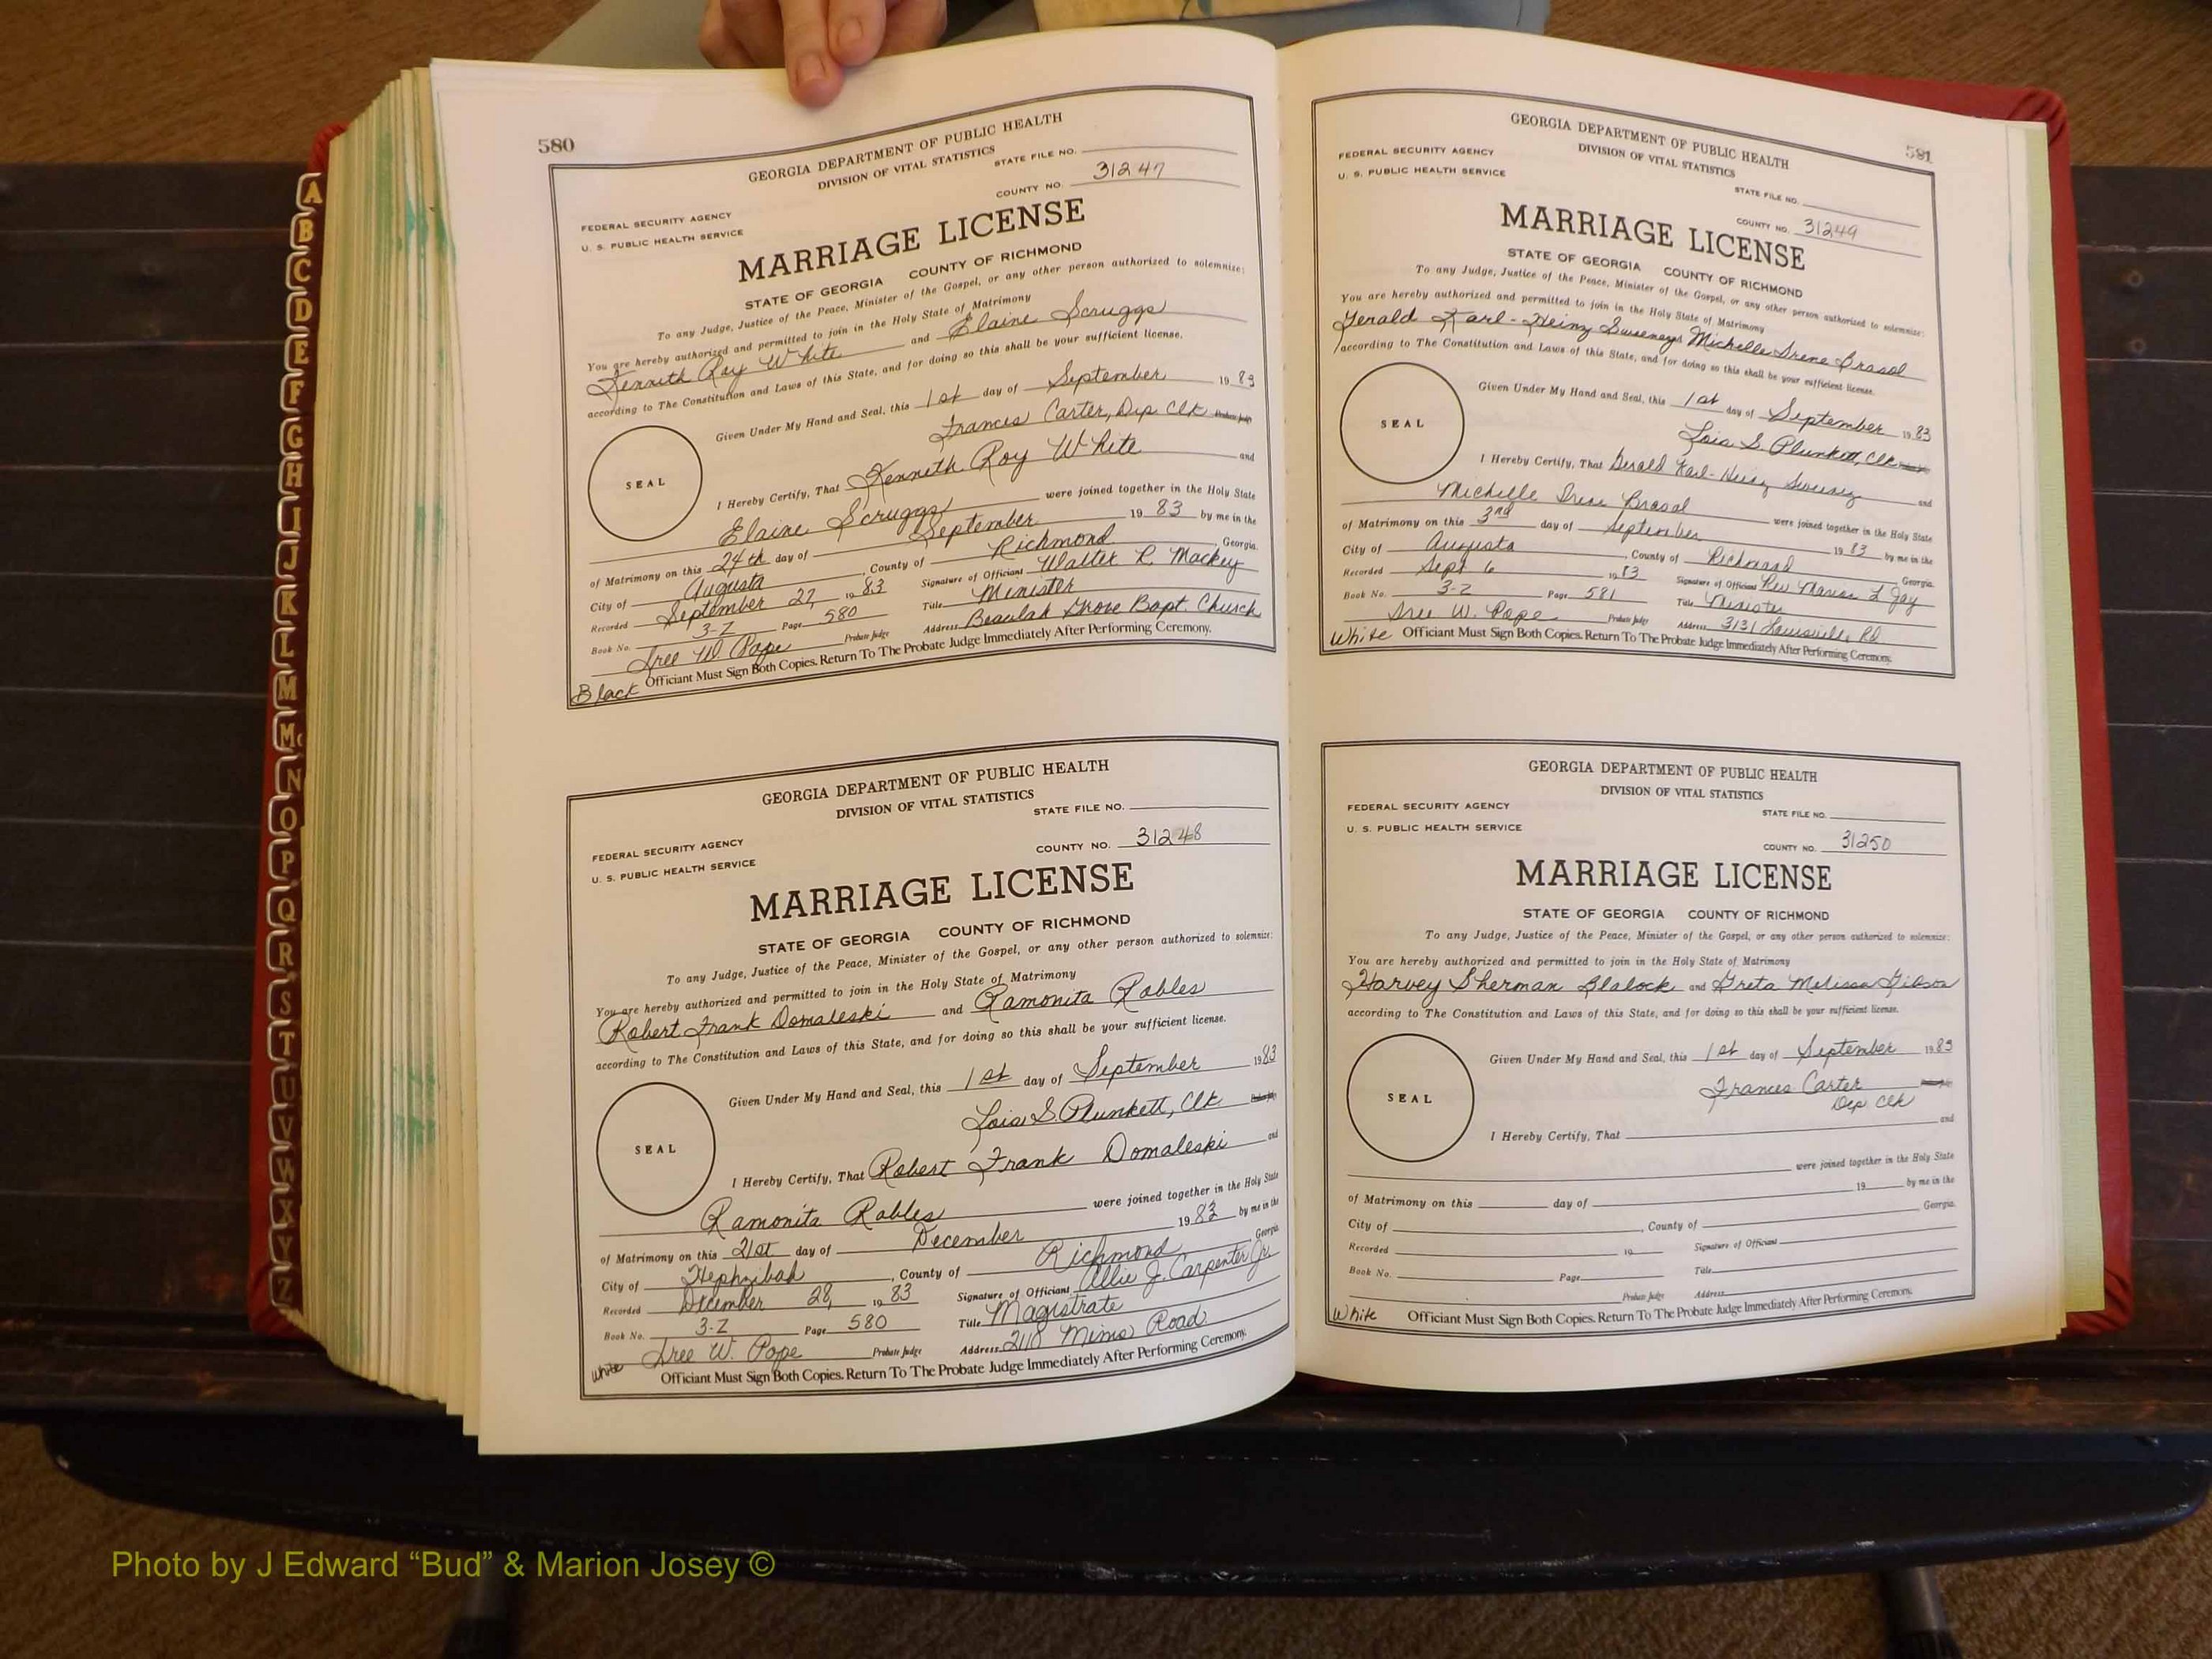 A
B
C
D
E
F
G
H
I
J
K
L
M
Mc
N
O
P
Q
R
S
T
U
V
W
X
Y
Z
580
GEORGIA DEPARTMENT OF PUBLIC HEALTH
DIVISION OF VITAL STATISTICS
STATE FILE NO.
COUNTY NO. 31247
FEDERAL SECURITY AGENCY
U. S. PUBLIC HEALTH SERVICE
MARRIAGE LICENSE
STATE OF GEORGIA COUNTY OF RICHMOND
To any Judge, Justice of the Peace, Minister of the Gospel, or any other person authorized to solemnize:
You are hereby authorized and permitted to join in the Holy State of Matrimony
Kenneth Roy White and Elaine Scruggs
according to The Constitution and Laws of this State, and for doing so this shall be your sufficient license.
Given Under My Hand and Seal, this 1st day of September 19 83
Frances Carter, Dep Clk Probate Judge
SEAL
I Hereby Certify, That Kenneth Roy White and
Elaine Scruggs were joined together in the Holy State
of Matrimony on this 24th day of September 19 83 by me in the
City of Augusta, County of Richmond, Georgia.
Recorded September 27, 19 83 Signature of Officiant Walter R. Mackey
Book No. 3-Z Page 580 Title Minister
Tree W Pope Probate Judge Address Beaulah Grove Bapt. Church
Black Officiant Must Sign Both Copies. Return To The Probate Judge Immediately After Performing Ceremony.
GEORGIA DEPARTMENT OF PUBLIC HEALTH
DIVISION OF VITAL STATISTICS
STATE FILE NO.
COUNTY NO. 31248
FEDERAL SECURITY AGENCY
U. S. PUBLIC HEALTH SERVICE
MARRIAGE LICENSE
STATE OF GEORGIA COUNTY OF RICHMOND
To any Judge, Justice of the Peace, Minister of the Gospel, or any other person authorized to solemnize:
You are hereby authorized and permitted to join in the Holy State of Matrimony
Robert Frank Domaleski and Ramonita Robles
according to The Constitution and Laws of this State, and for doing so this shall be your sufficient license.
Given Under My Hand and Seal, this 1st day of September 19 83
Lois S. Plunkett, Clk Probate Judge
SEAL
I Hereby Certify, That Robert Frank Domaleski and
Ramonita Robles were joined together in the Holy State
of Matrimony on this 21st day of December 19 83 by me in the
City of Hephzibah, County of Richmond Georgia.
Recorded December 28, 19 83 Signature of Officiant Ollie J. Carpenter Jr
Book No. 3-Z Page 580 Title Magistrate
Tree W. Pope Probate Judge Address 2118 Mims Road
White Officiant Must Sign Both Copies. Return To The Probate Judge Immediately After Performing Ceremony.
581
GEORGIA DEPARTMENT OF PUBLIC HEALTH
DIVISION OF VITAL STATISTICS
FEDERAL SECURITY AGENCY
U. S. PUBLIC HEALTH SERVICE
STATE FILE NO.
COUNTY NO. 31249
MARRIAGE LICENSE
STATE OF GEORGIA COUNTY OF RICHMOND
To any Judge, Justice of the Peace, Minister of the Gospel, or any other person authorized to solemnize:
You are hereby authorized and permitted to join in the Holy State of Matrimony
Gerald Karl-Heinz Sweeney and Michelle Irene Brasol
according to The Constitution and Laws of this State, and for doing so this shall be your sufficient license.
Given Under My Hand and Seal, this 1st day of September 19 83
Lois S. Plunkett, Clk
SEAL
I Hereby Certify, That Gerald Karl-Heinz Sweeney and
Michelle Irene Brasol were joined together in the Holy State
of Matrimony on this 3rd day of September 19 83 by me in the
City of Augusta, County of Richmond Georgia.
Recorded Sept 6 19 83 Signature of Officiant Rev Marion L Jay
Book No. 3-Z Page 581 Title Minister
Tree W. Pope Probate Judge Address 3131 Louisville Rd
White Officiant Must Sign Both Copies. Return To The Probate Judge Immediately After Performing Ceremony.
GEORGIA DEPARTMENT OF PUBLIC HEALTH
DIVISION OF VITAL STATISTICS
FEDERAL SECURITY AGENCY
U. S. PUBLIC HEALTH SERVICE
STATE FILE NO.
COUNTY NO. 31250
MARRIAGE LICENSE
STATE OF GEORGIA COUNTY OF RICHMOND
To any Judge, Justice of the Peace, Minister of the Gospel, or any other person authorized to solemnize:
You are hereby authorized and permitted to join in the Holy State of Matrimony
Harvey Sherman Blalock and Greta Melissa Gibson
according to The Constitution and Laws of this State, and for doing so this shall be your sufficient license.
Given Under My Hand and Seal, this 1st day of September 19 83
Frances Carter
Dep Clk
SEAL
I Hereby Certify, That and
were joined together in the Holy State
of Matrimony on this day of 19 by me in the
City of , County of Georgia.
Recorded 19 Signature of Officiant
Book No. Page Title
Probate Judge Address
White Officiant Must Sign Both Copies. Return To The Probate Judge Immediately After Performing Ceremony.
Photo by J Edward “Bud” & Marion Josey ©